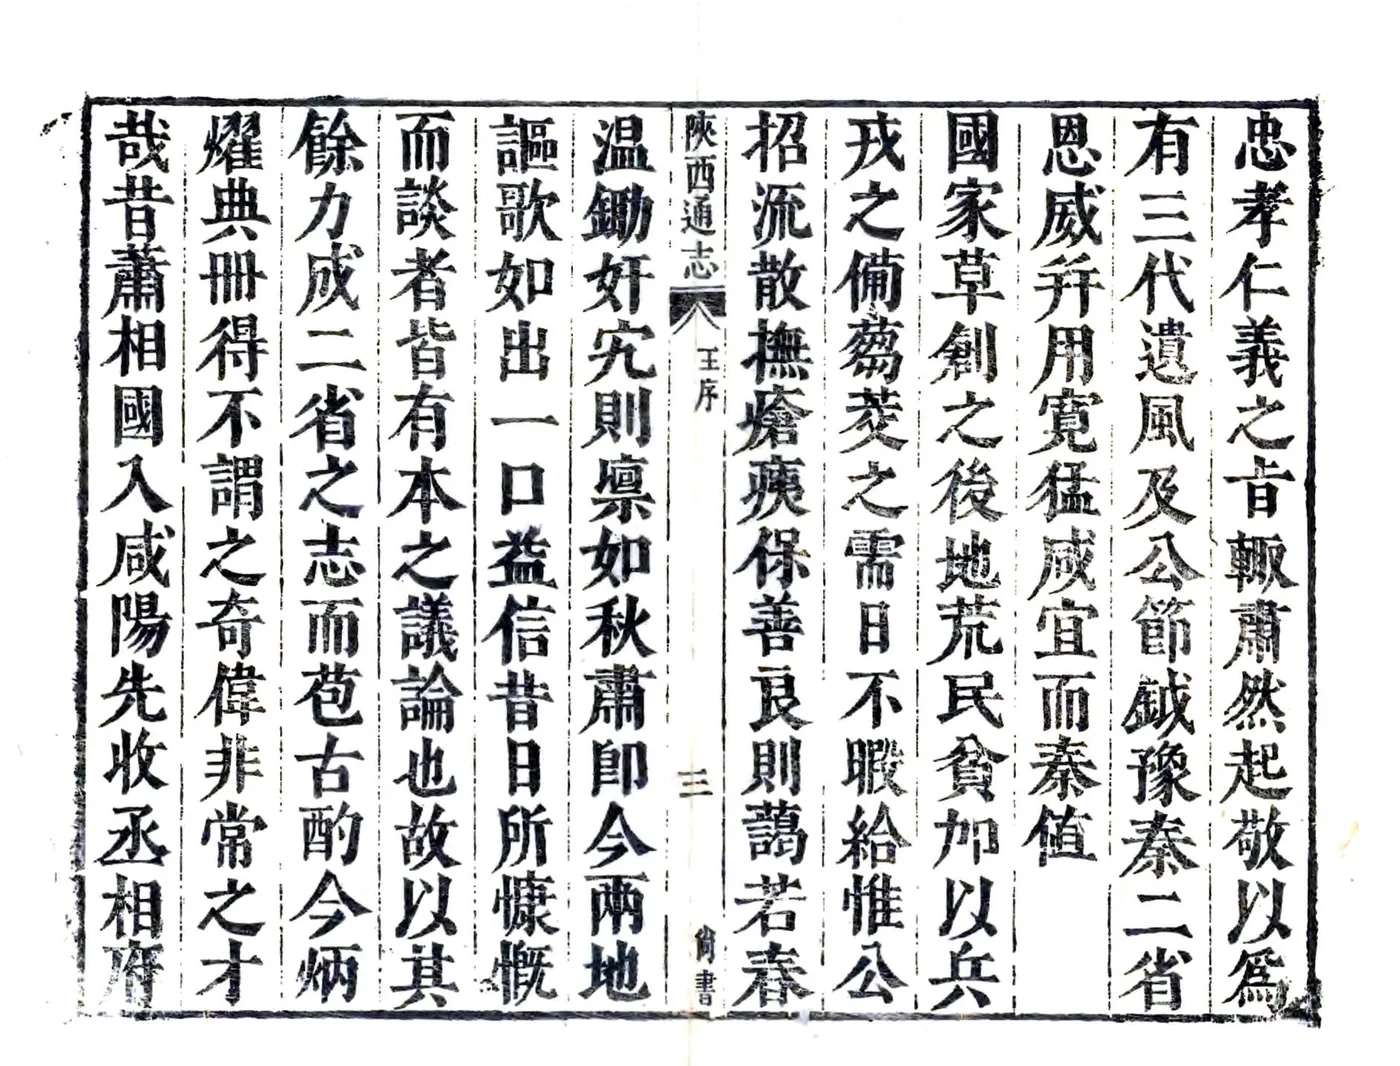 忠孝仁義之㫖輙肅然起敬以爲
有三代遺風及公節鉞豫秦二省
恩威并用寛猛咸宜而秦值
國家草創之後地荒民貧加以兵
戎之備蒭茭之需日不暇給惟公
招流散撫瘡痍保善良則藹若春
陝西通志
王序
三
尙書
温鋤奸宄則凛如秋肅卽今兩地
謳歌如出一口益信昔日所慷慨
而談者皆有本之議論也故以其
餘力成二省之志而苞古酌今炳
燿典冊得不謂之奇偉非常之才
哉昔蕭相國入咸陽先收丞相府